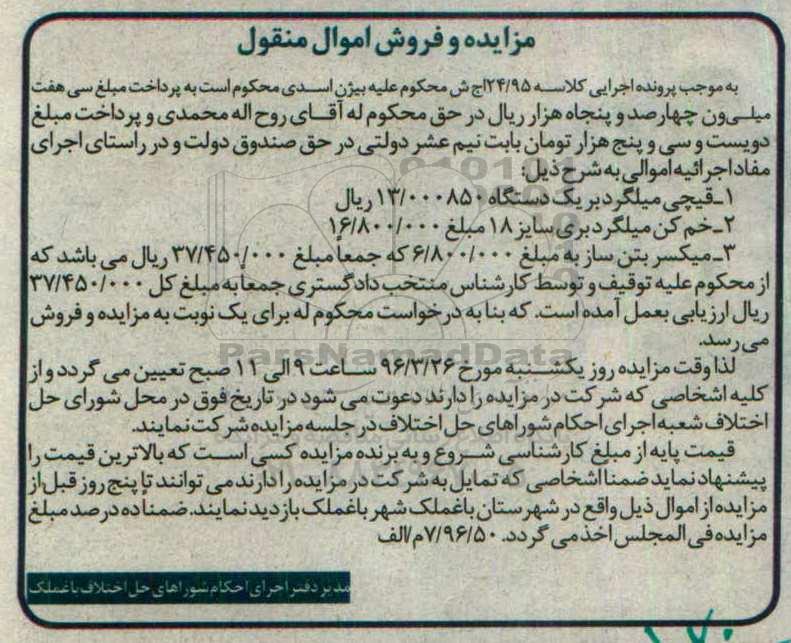 مزایده و فروش اموال منقول
به موجب پرونده اجرایی کلاسه ۲۴/۹۵اج ش محکوم علیه بیژن اسدی محکوم است به پرداخت مبلغ سی هفت
میلیون چهارصد و پنجاه هزار ریال در حق محکوم له آقای روح اله محمدی و پرداخت مبلغ
دویست و سی و پنج هزار تومان بابت نیم عشر دولتی در حق صندوق دولت و در راستای اجرای
مفاد اجرائیه اموالی به شرح ذیل:
۱ـ قیچی میلگرد بر یک دستگاه ۱۳/۰۰۰۸۵۰ ریال
۲ـ خم کن میلگرد بری سایز ۱۸ مبلغ ۱۶/۸۰۰/۰۰۰
۳ـ میکسر بتن ساز به مبلغ ۶/۸۰۰/۰۰۰ که جمعاً مبلغ ۳۷/۴۵۰/۰۰۰ ریال می باشد که
از محکوم علیه توقیف و توسط کارشناس منتخب دادگستری جمعاً به مبلغ کل ۳۷/۴۵۰/۰۰۰
ریال ارزیابی بعمل آمده است. که بنا به درخواست محکوم له برای یک نوبت به مزایده و فروش
می رسد.
لذا وقت مزایده روز یکشنبه مورخ ۹۶/۳/۲۶ ساعت ۹ الی ۱۱ صبح تعیین می گردد و از
کلیه اشخاصی که شرکت در مزایده را دارند دعوت می شود در تاریخ فوق در محل شورای حل
اختلاف شعبه اجرای احکام شوراهای حل اختلاف در جلسه مزایده شرکت نمایند.
قیمت پایه از مبلغ کارشناسی شروع و به برنده مزایده کسی است که بالاترین قیمت را
پیشنهاد نماید ضمنا اشخاصی که تمایل به شرکت در مزایده را دارند می توانند تا پنج روز قبل از
مزایده از اموال ذیل واقع در شهرستان باغملک شهر باغملک بازدید نمایند. ضمنا ده درصد مبلغ
مزایده فی المجلس اخذ می گردد. ۷/۹۶/۵۰م/الف
مدیر دفتر اجرای احکام شوراهای حل اختلاف باغملک
ParsNamadData